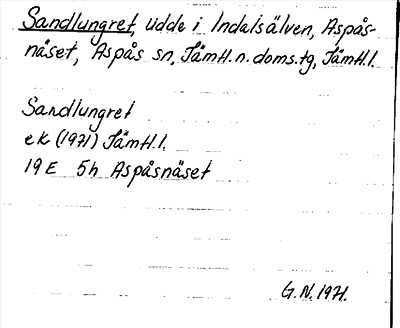 Sandlungret, udde i Indalsälven, Aspås-
näset, Aspås sn, Jämtl.n.doms.tg, Jämtl.l.
Sandlungret
ek (1971) Jämtl.l.
19E 5h Aspåsnäset
G.N. 1971.